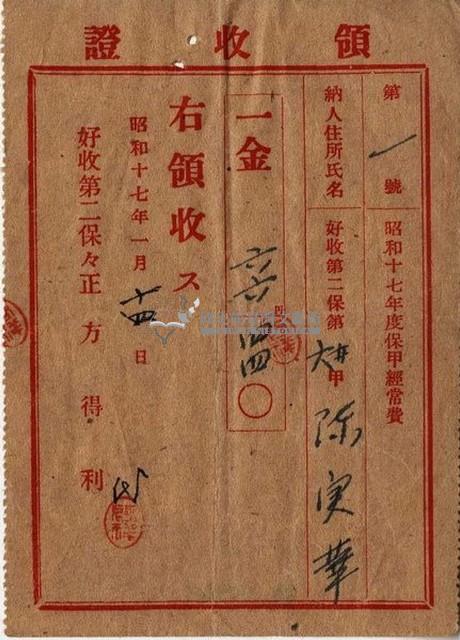 領收證
第一號 昭和十七年度保甲經常費
納人住所氏名 好收第二保第 甲 陈实華
一金 〇
右領收ス
昭和十七年一月 日
好收第二保々正 方得利